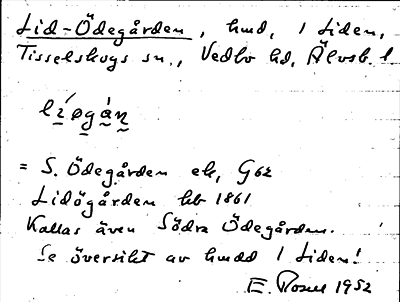 Lid-Ödegården, hmd, 1 Liden,
Tisselskogs sn., Vedbo hd, Älvsb. l
líøgàn
= S. Ödegården ek, G62
Lidögården kb 1861
Kallas även Södra Ödegården.
Se översikt av hmdd 1 Liden!
E. Rosell 1952